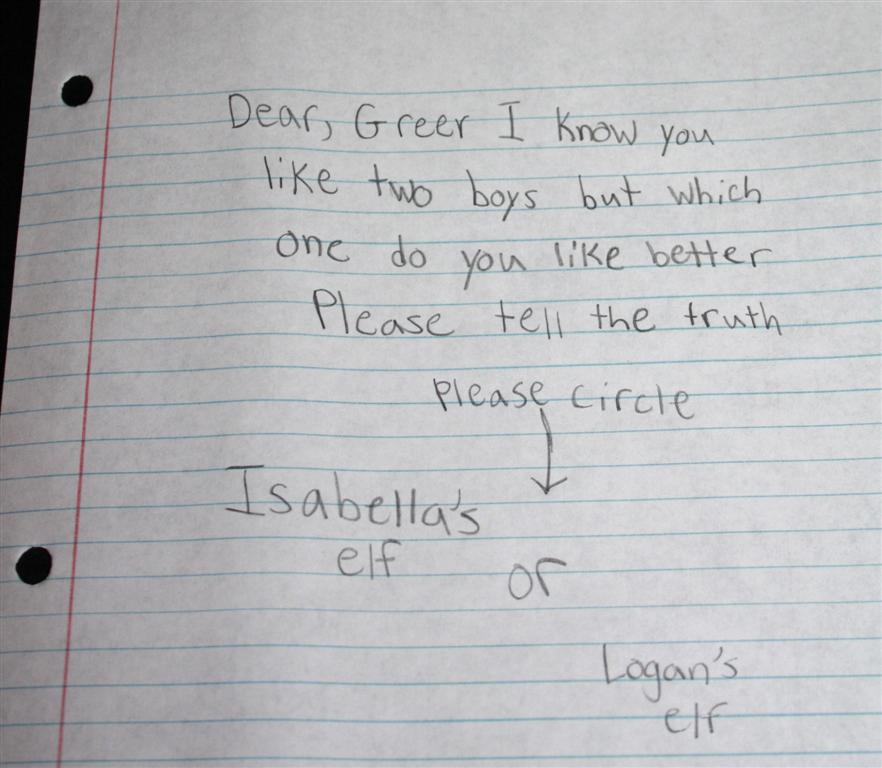 Dear, Greer I know you
like two boys but which
one do you like better
Please tell the truth
please circle
Isabella's
elf
or
Logan's
elf